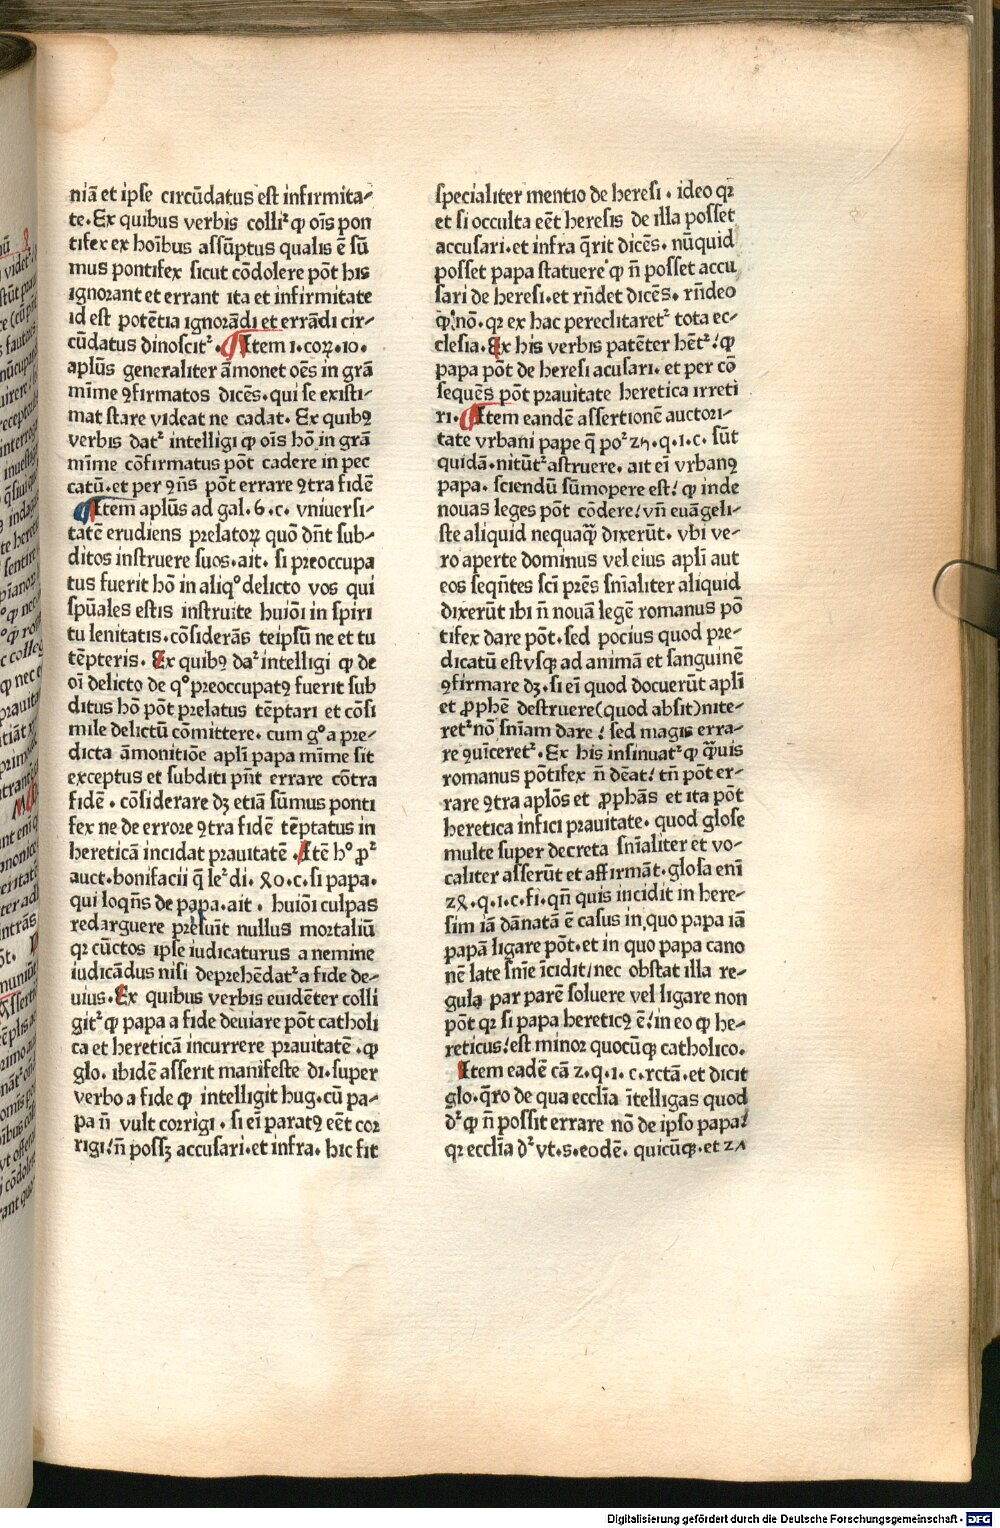 niā et ipse circūdatus est infirmita-
te. Ex quibus verbis colliᵗ ꝙ oīs pon
tifex ex hoībus assūptus qualis ē sū
mus pontifex sicut cōdolere pōt his
ignorant et errant ita et infirmitate
id est potētia ignorādi et errādi cir-
cūdatus dinosciᵗ. Item 1. coꝝ. 10.
aplūs generaliter āmonet oēs in grā
mīme ꝯfirmatos dicēs. qui se existi-
mat stare videat ne cadat. Ex quibꝰ
verbis daᵗ intelligi ꝙ oīs hō in grā
mīme cōfirmatus pōt cadere in pec
catū. et per ꝯn̄s pōt errare ꝯtra fidē
Item aplūs ad gal. 6. c. vniuersi-
tatē erudiens prelatoꝝ quō dn̄t sub-
ditos instruere suos. ait. si preoccupa
tus fuerit hō in aliqᵒ delicto vos qui
spūales estis instruite huiōi in spiri
tu lenitatis. cōsiderās teipsū ne et tu
tēpteris. Ex quibꝰ daᵗ intelligi ꝙ de
oī delicto de qᵒ preoccupatꝰ fuerit sub
ditus hō pōt prelatus tēptari et cōsi
mile delictū cōmittere. cum gᵒ a pre-
dicta āmonitiōe aplī papa mīme sit
exceptus et subditi pn̄t errare cōtra
fidē. cōsiderare dꝫ etiā sūmus ponti
fex ne de errore ꝯtra fidē tēptatus in
hereticā incidat prauitatē. Itē hᵒ ꝓᵗ
auct. bonifacii q̄ leᵗ di. ꝝ0. c. si papa.
qui loqn̄s de papa. ait. huiōi culpas
redarguere presuīt nullus mortaliū
qꝛ cūctos ipse iudicaturus a nemine
iudicādus nisi deprehēdatᵗ a fide de-
uius. Ex quibus verbis euidēter colli
gitᵗ ꝙ papa a fide deuiare pōt catholi
ca et hereticā incurrere prauitatē. ꝙ
glo. ibidē asserit manifeste di. super
verbo a fide ꝙ intelligit hug. cū pa-
pa n̄ vult corrigi. si eī paratꝰ eēt cor
rigi! n̄ possꝫ accusari. et infra. hic fit
specialiter mentio de heresi. ideo qꝛ
et si occulta eēt heresis de illa posset
accusari. et infra q̄rit dicēs. nūquid
posset papa statuere ꝙ n̄ posset accu
sari de heresi. et rn̄det dicēs. rn̄deo
ꝙ nō. qꝛ ex hac pereclitaretᵗ tota ec-
clesia. Ex his verbis patēter hētᵗ! ꝙ
papa pōt de heresi acusari. et per cō
sequēs pōt prauitate heretica irreti
ri. Item eandē assertionē auctori-
tate vrbani pape q̄ poᵗ 25. q. 1. c. sūt
quidā. nitūtᵗ astruere. ait eī vrbanꝰ
papa. sciendū sūmopere est! ꝙ inde
nouas leges pōt cōdere! vn̄ euāgeli-
ste aliquid nequaꝙ̄ dixerūt. vbi ve-
ro aperte dominus vel eius aplī aut
eos seqn̄tes scī prēs sn̄ialiter aliquid
dixerūt ibi n̄ nouā legē romanus pō
tifex dare pōt. sed pocius quod pre-
dicatū est vsqꝫ ad animā et sanguinē
ꝯfirmare dꝫ. si eī quod docuerūt aplī
et ꝓphē destruere (quod absit) nite-
retᵗ nō sn̄iam dare! sed magis erra-
re ꝯuīceretᵗ. Ex his insinuatᵗ ꝙ ꝙ̄uis
romanus pōtifex n̄ dēat! tn̄ pōt er-
rare ꝯtra aplōs et ꝓphās et ita pōt
heretica infici prauitate. quod glose
multe super decreta sn̄ialiter et vo-
caliter asserūt et affirmāt. glosa enī
24. q. 1. c. fi. qn̄ quis incidit in here-
sim iā dānatā ē casus in quo papa iā
papā ligare pōt. et in quo papa cano
nē late sn̄ie īcidit! nec obstat illa re-
gula par parē soluere vel ligare non
pōt qꝛ si papa hereticꝰ ē! in eo ꝙ he-
reticus! est minor quocūqꝫ catholico.
Item eadē cā 2. q. 1. c. rctā. et dicit
glo. q̄ro de qua ecclīa ītelligas quod
dᵗ ꝙ n̄ possit errare nō de ipso papa!
qꝛ ecclīa dᵗ vt. s. eodē. quicūqꝫ. et 2ʌ
Digitalisierung gefördert durch die Deutsche Forschungsgemeinschaft - DFG